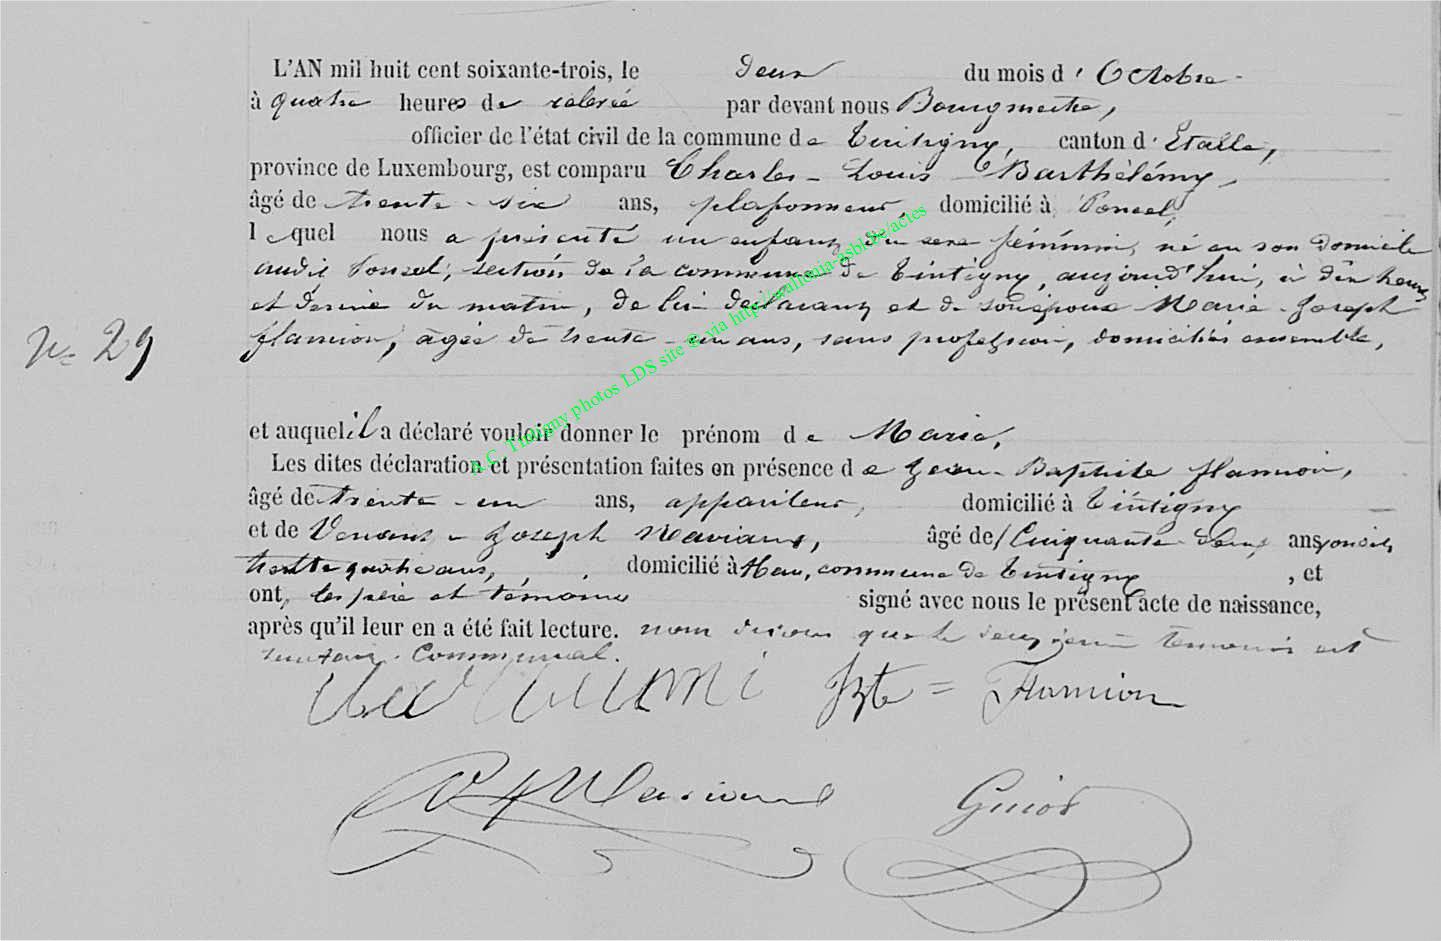 L'AN mil huit cent soixante-trois, le deux du mois d' Octobre
à quatre heures de relevée par devant nous Bourgmestre,
officier de l'état civil de la commune de Tintigny, canton d'Etalle,
province de Luxembourg, est comparu Charles-Louis Barthélémy,
âgé de trente-six ans, plafonneur, domicilié à Poncel,
lequel nous a présenté un enfant du sexe féminin, né en son domicile
audit Poncel, section de la commune de Tintigny, aujourd'hui, à dix heures
et demie du matin, de lui déclarant et de son épouse Marie-Joseph
N° 29
flamion, âgée de trente-un ans, sans profession, domiciliés ensemble,
et auquel il a déclaré vouloir donner le prénom de Marie,
Les dites déclaration et présentation faites en présence de Jean-Baptiste flamion,
âgé de trente-un ans, appariteur, domicilié à Tintigny
et de Venant-Joseph âgé de Cinquante ans
domicilié à Han, commune de Tintigny, et
ont, les père et témoins signé avec nous le présent acte de naissance,
après qu'il leur en a été fait lecture. nous disons que le deuxième témoin est
Communal.
JBte = Flamion
Guiot
A.C. Tintigny photos LDS site © via http://wallonia-asbl.be/actes